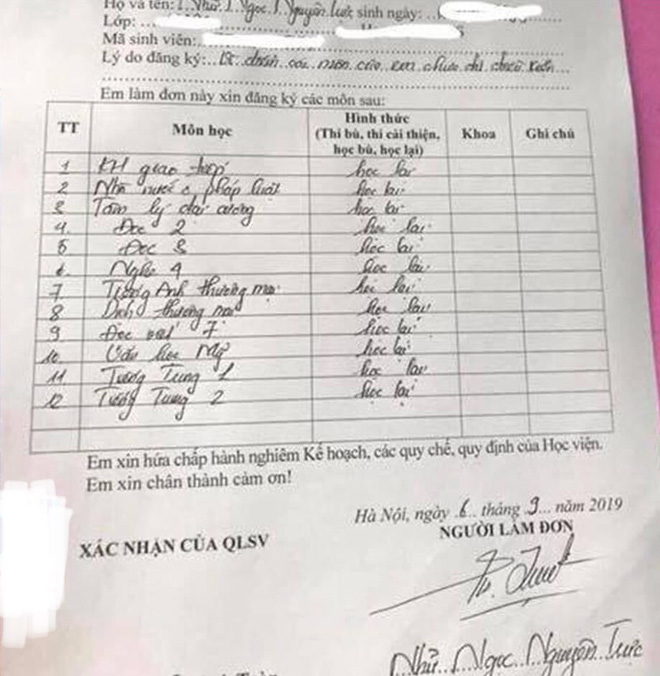 Họ và tên: Nhữ Ngọc Nguyên Trực sinh ngày:
Lớp:
Mã sinh viên:
Lý do đăng ký: các môn của em chưa
Em làm đơn này xin đăng ký các môn sau:
TT Môn học Hình thức (Thi bù, thi cải thiện, học bù, học lại) Khoa Ghi chú
1 KH giao tiếp học lại
2 Nhà nước & pháp luật học lại
3 Tâm lý đại cương học lại
4. Đọc 2 học lại
5 Đọc 3 học lại
6 Nghe 4 học lại
7 Tiếng Anh thương mại học lại
8 Dịch thương mại học lại
9 Đọc 7 học lại
10. Văn học Mỹ học lại
11 Tiếng Trung 1 học lại
12 Tiếng Trung 2 học lại
Em xin hứa chấp hành nghiêm Kế hoạch, các quy chế, quy định của Học viện.
Em xin chân thành cảm ơn!
Hà Nội, ngày 6 tháng 9 năm 2019
XÁC NHẬN CỦA QLSV NGƯỜI LÀM ĐƠN
Nhữ Ngọc Nguyên Trực